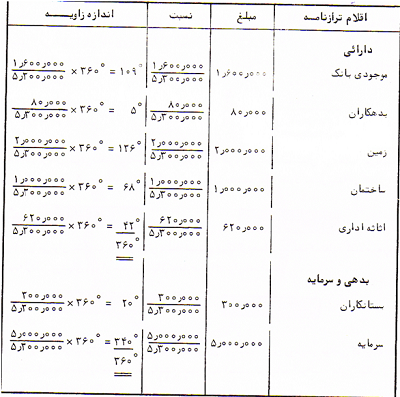 اقلام ترازنامه مبلغ نسبت اندازه زاویــه
دارائی
موجودی بانک ۱ر۶۰۰ر۰۰۰ ۱ر۶۰۰ر۰۰۰/۵ر۳۰۰ر۰۰۰ ۱ر۶۰۰ر۰۰۰/۵ر۳۰۰ر۰۰۰ × ۳۶۰° = ۱۰۹°
بدهکاران ۸۰ر۰۰۰ ۸۰ر۰۰۰/۵ر۳۰۰ر۰۰۰ ۸۰ر۰۰۰/۵ر۳۰۰ر۰۰۰ × ۳۶۰° = ۵°
زمین ۲ر۰۰۰ر۰۰۰ ۲ر۰۰۰ر۰۰۰/۵ر۳۰۰ر۰۰۰ ۲ر۰۰۰ر۰۰۰/۵ر۳۰۰ر۰۰۰ × ۳۶۰° = ۱۳۶°
ساختمان ۱ر۰۰۰ر۰۰۰ ۱ر۰۰۰ر۰۰۰/۵ر۳۰۰ر۰۰۰ ۱ر۰۰۰ر۰۰۰/۵ر۳۰۰ر۰۰۰ × ۳۶۰° = ۶۸°
اثاثه اداری ۶۲۰ر۰۰۰ ۶۲۰ر۰۰۰/۵ر۳۰۰ر۰۰۰ ۶۲۰ر۰۰۰/۵ر۳۰۰ر۰۰۰ × ۳۶۰° = ۴۲°
۳۶۰°
بدهی و سرمایه
بستانکاران ۳۰۰ر۰۰۰ ۳۰۰ر۰۰۰/۵ر۳۰۰ر۰۰۰ ۳۰۰ر۰۰۰/۵ر۳۰۰ر۰۰۰ × ۳۶۰° = ۲۰°
سرمایه ۵ر۰۰۰ر۰۰۰ ۵ر۰۰۰ر۰۰۰/۵ر۳۰۰ر۰۰۰ ۵ر۰۰۰ر۰۰۰/۵ر۳۰۰ر۰۰۰ × ۳۶۰° = ۳۴۰°
۳۶۰°